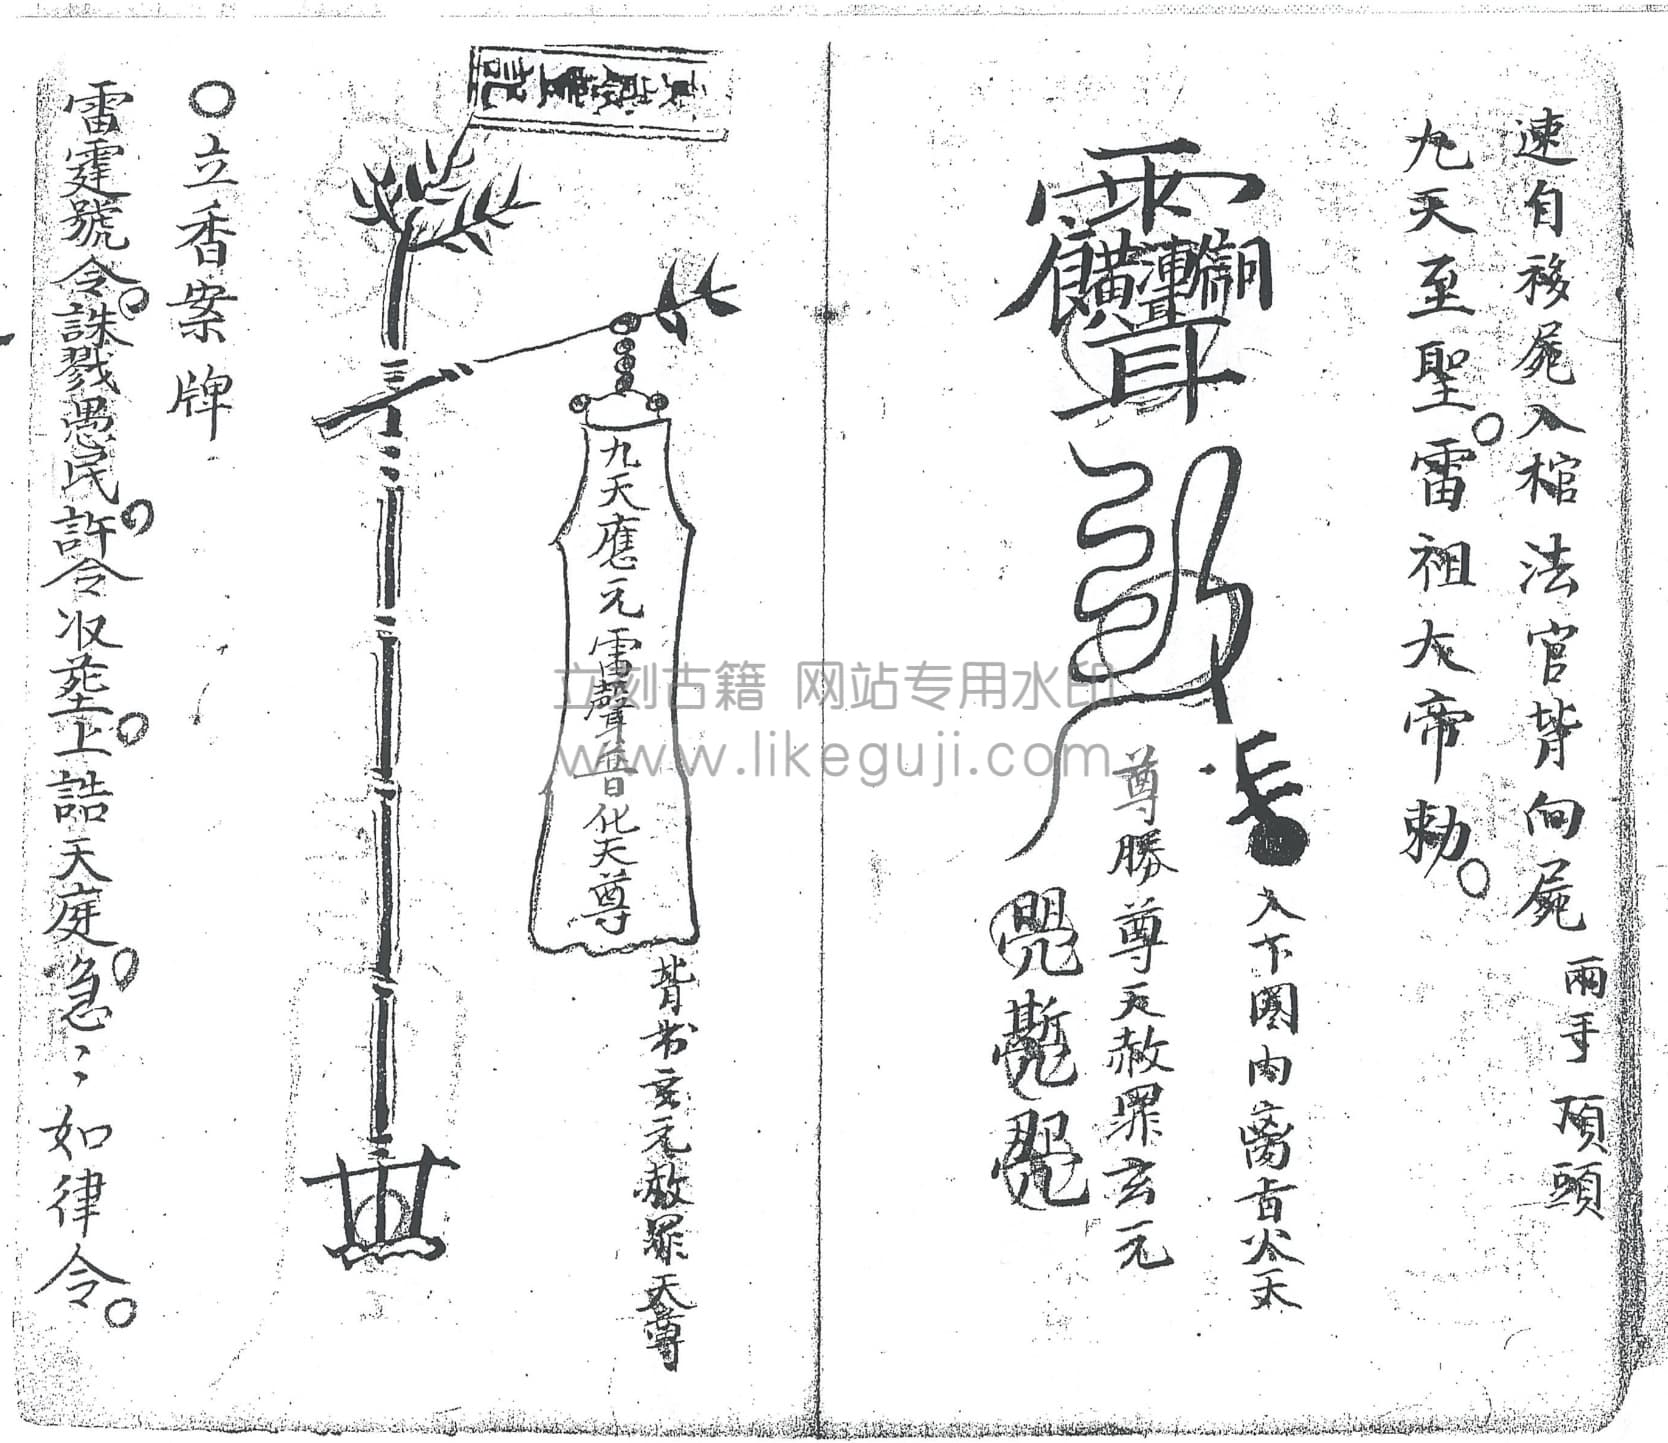 速自移屍入棺法官背向屍兩手頂頭
九天至聖雷祖大帝勅
入下圏内离旨火天
尊勝尊天赦罪玄元
九天應元雷聲普化天尊
背书玄元赦罪天尊
立香案牌
雷霆號令誅戮愚民許令收葬上誥天庭急〻如律令
立刻古籍 网站专用水印
www.likeguji.com